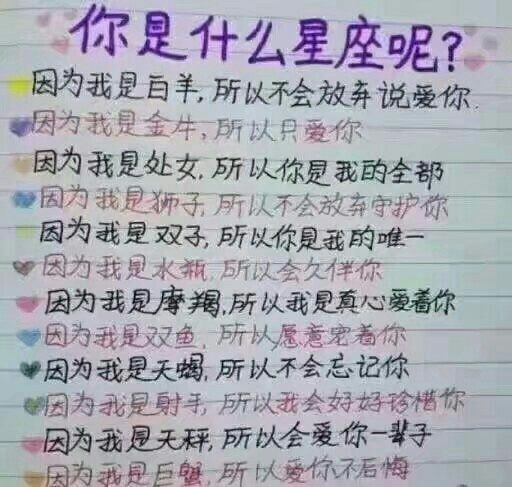 你是什么星座呢?
因为我是白羊,所以不会放弃说爱你.
因为我是金牛,所以只爱你
因为我是处女,所以你是我的全部
因为我是狮子,所以不会放弃守护你
因为我是双子,所以你是我的唯一
因为我是水瓶,所以会久伴你
因为我是摩羯,所以我是真心爱着你
因为我是双鱼,所以愿意宠着你
因为我是天蝎,所以不会忘记你
因为我是射手,所以我会好好珍惜你
因为我是天秤,所以会爱你一辈子
因为我是巨蟹,所以爱你不后悔